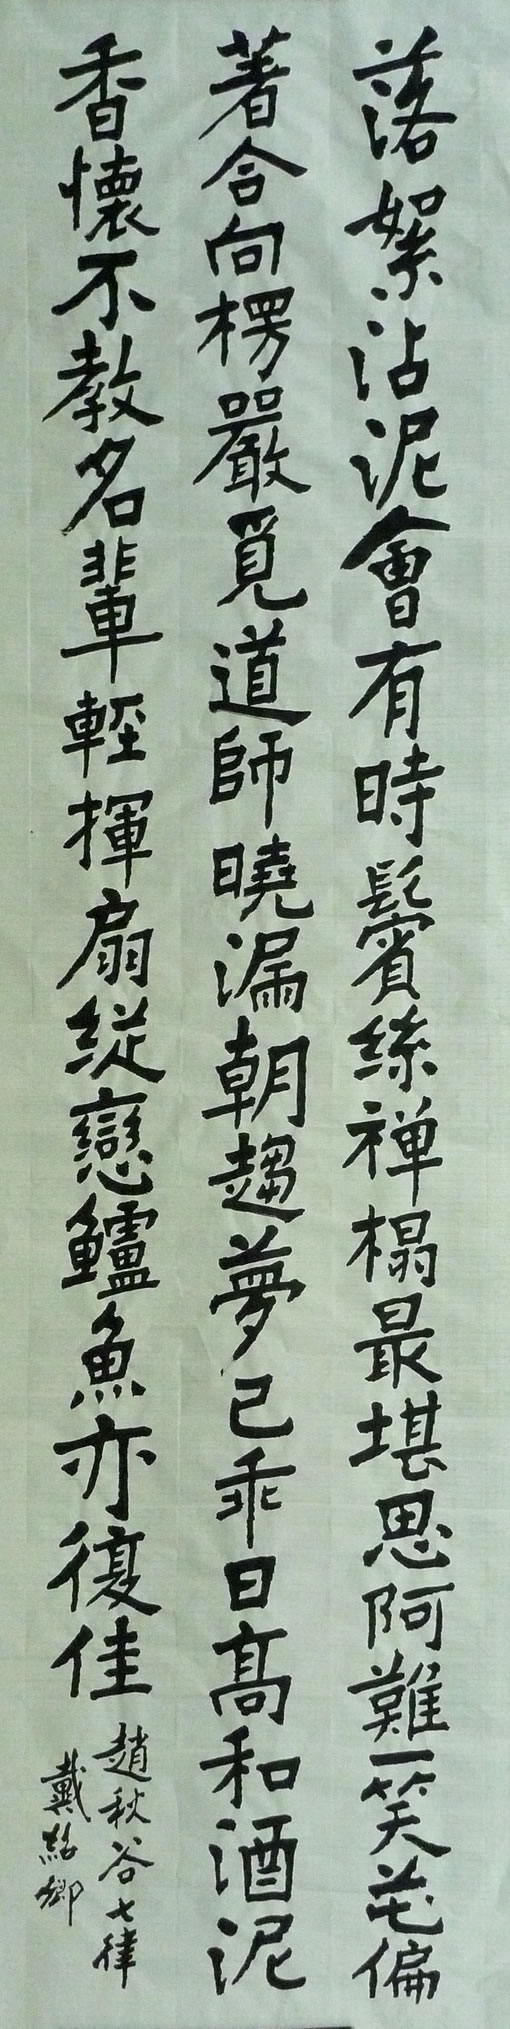 落絮沾泥會有時鬢絲禪榻最堪思阿難一笑花偏
著合向楞嚴覓道師曉漏朝趨夢已乖日高和酒泥
香懷不教名輩輕揮扇縱戀鱸魚亦復佳
趙秋谷七律
戴紹卿